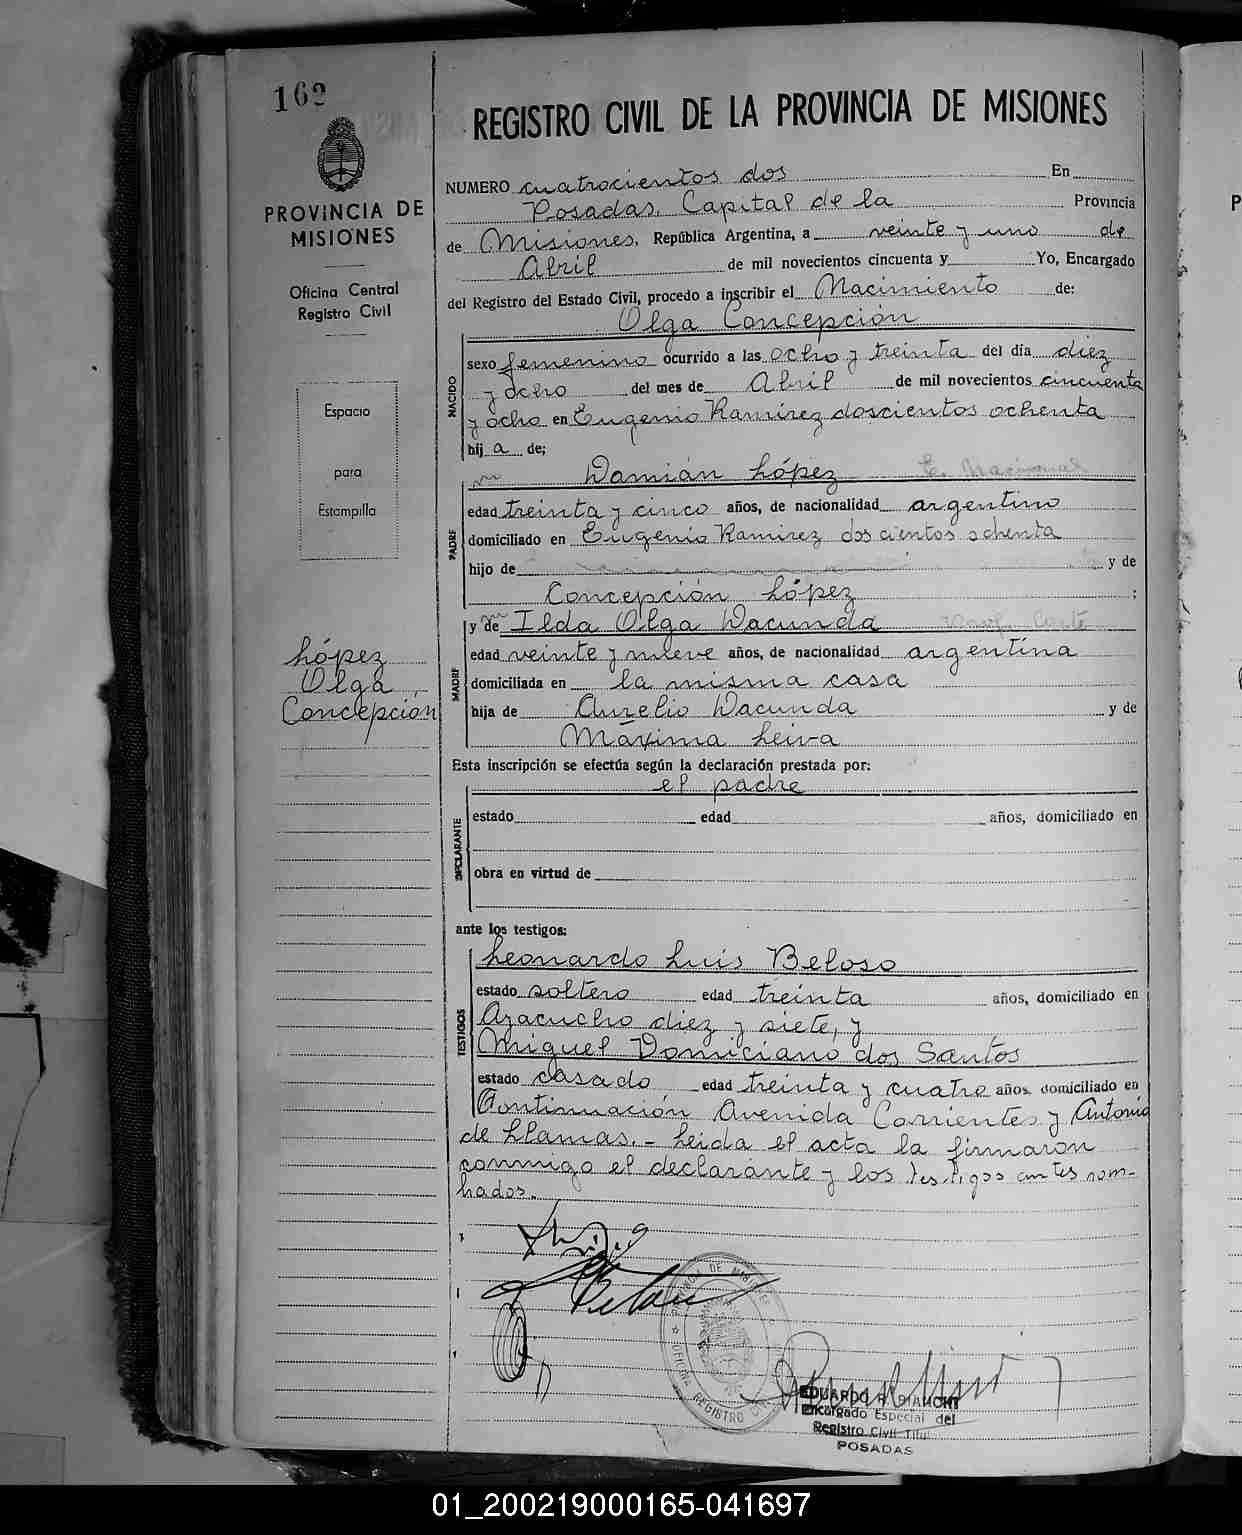 162
PROVINCIA DE
MISIONES
Oficina Central
Registro Civil
Espacio
para
Estampilla
López
Olga
Concepción
REGISTRO CIVIL DE LA PROVINCIA DE MISIONES
NUMERO cuatrocientos dos En
Posadas, Capital de la Provincia
de Misiones, República Argentina, a veinte y uno de
Abril de mil novecientos cincuenta y Yo, Encargado
del Registro del Estado Civil, procedo a inscribir el Nacimiento de:
Olga Concepción
NACIDO
sexo femenino ocurrido a las ocho y treinta del día diez
y ocho del mes de Abril de mil novecientos cincuenta
y ocho en Eugenio Ramírez doscientos ochenta
hij a de;
Damián López E. Nacional
PADRE
edad treinta y cinco años, de nacionalidad argentino
domiciliado en Eugenio Ramirez doscientos ochenta
hijo de y de
Concepción López ;
y de Ilda Olga Dacunda
MADRE
edad veinte y nueve años, de nacionalidad argentina
domiciliada en la misma casa
hija de Aurelio Dacunda y de
Máxima Leiva
Esta inscripción se efectúa según la declaración prestada por:
el padre
DECLARANTE
estado edad años, domiciliado en
obra en virtud de
ante los testigos:
Leonardo Luis Beloso
TESTIGOS
estado soltero edad treinta años, domiciliado en
Ayacucho diez y siete, y
Miguel Domiciano dos Santos
estado casado edad treinta y cuatro años, domiciliado en
Continuación Avenida Corrientes y Antonio
de Llamas. - Leida el acta la firmaron
conmigo el declarante y los testigos antes nom-
brados.
PROVINCIA DE MISIONES
OFICINA REGISTRO
EDUARDO
Encargado Especial del
Registro Civil
POSADAS
01_200219000165-041697